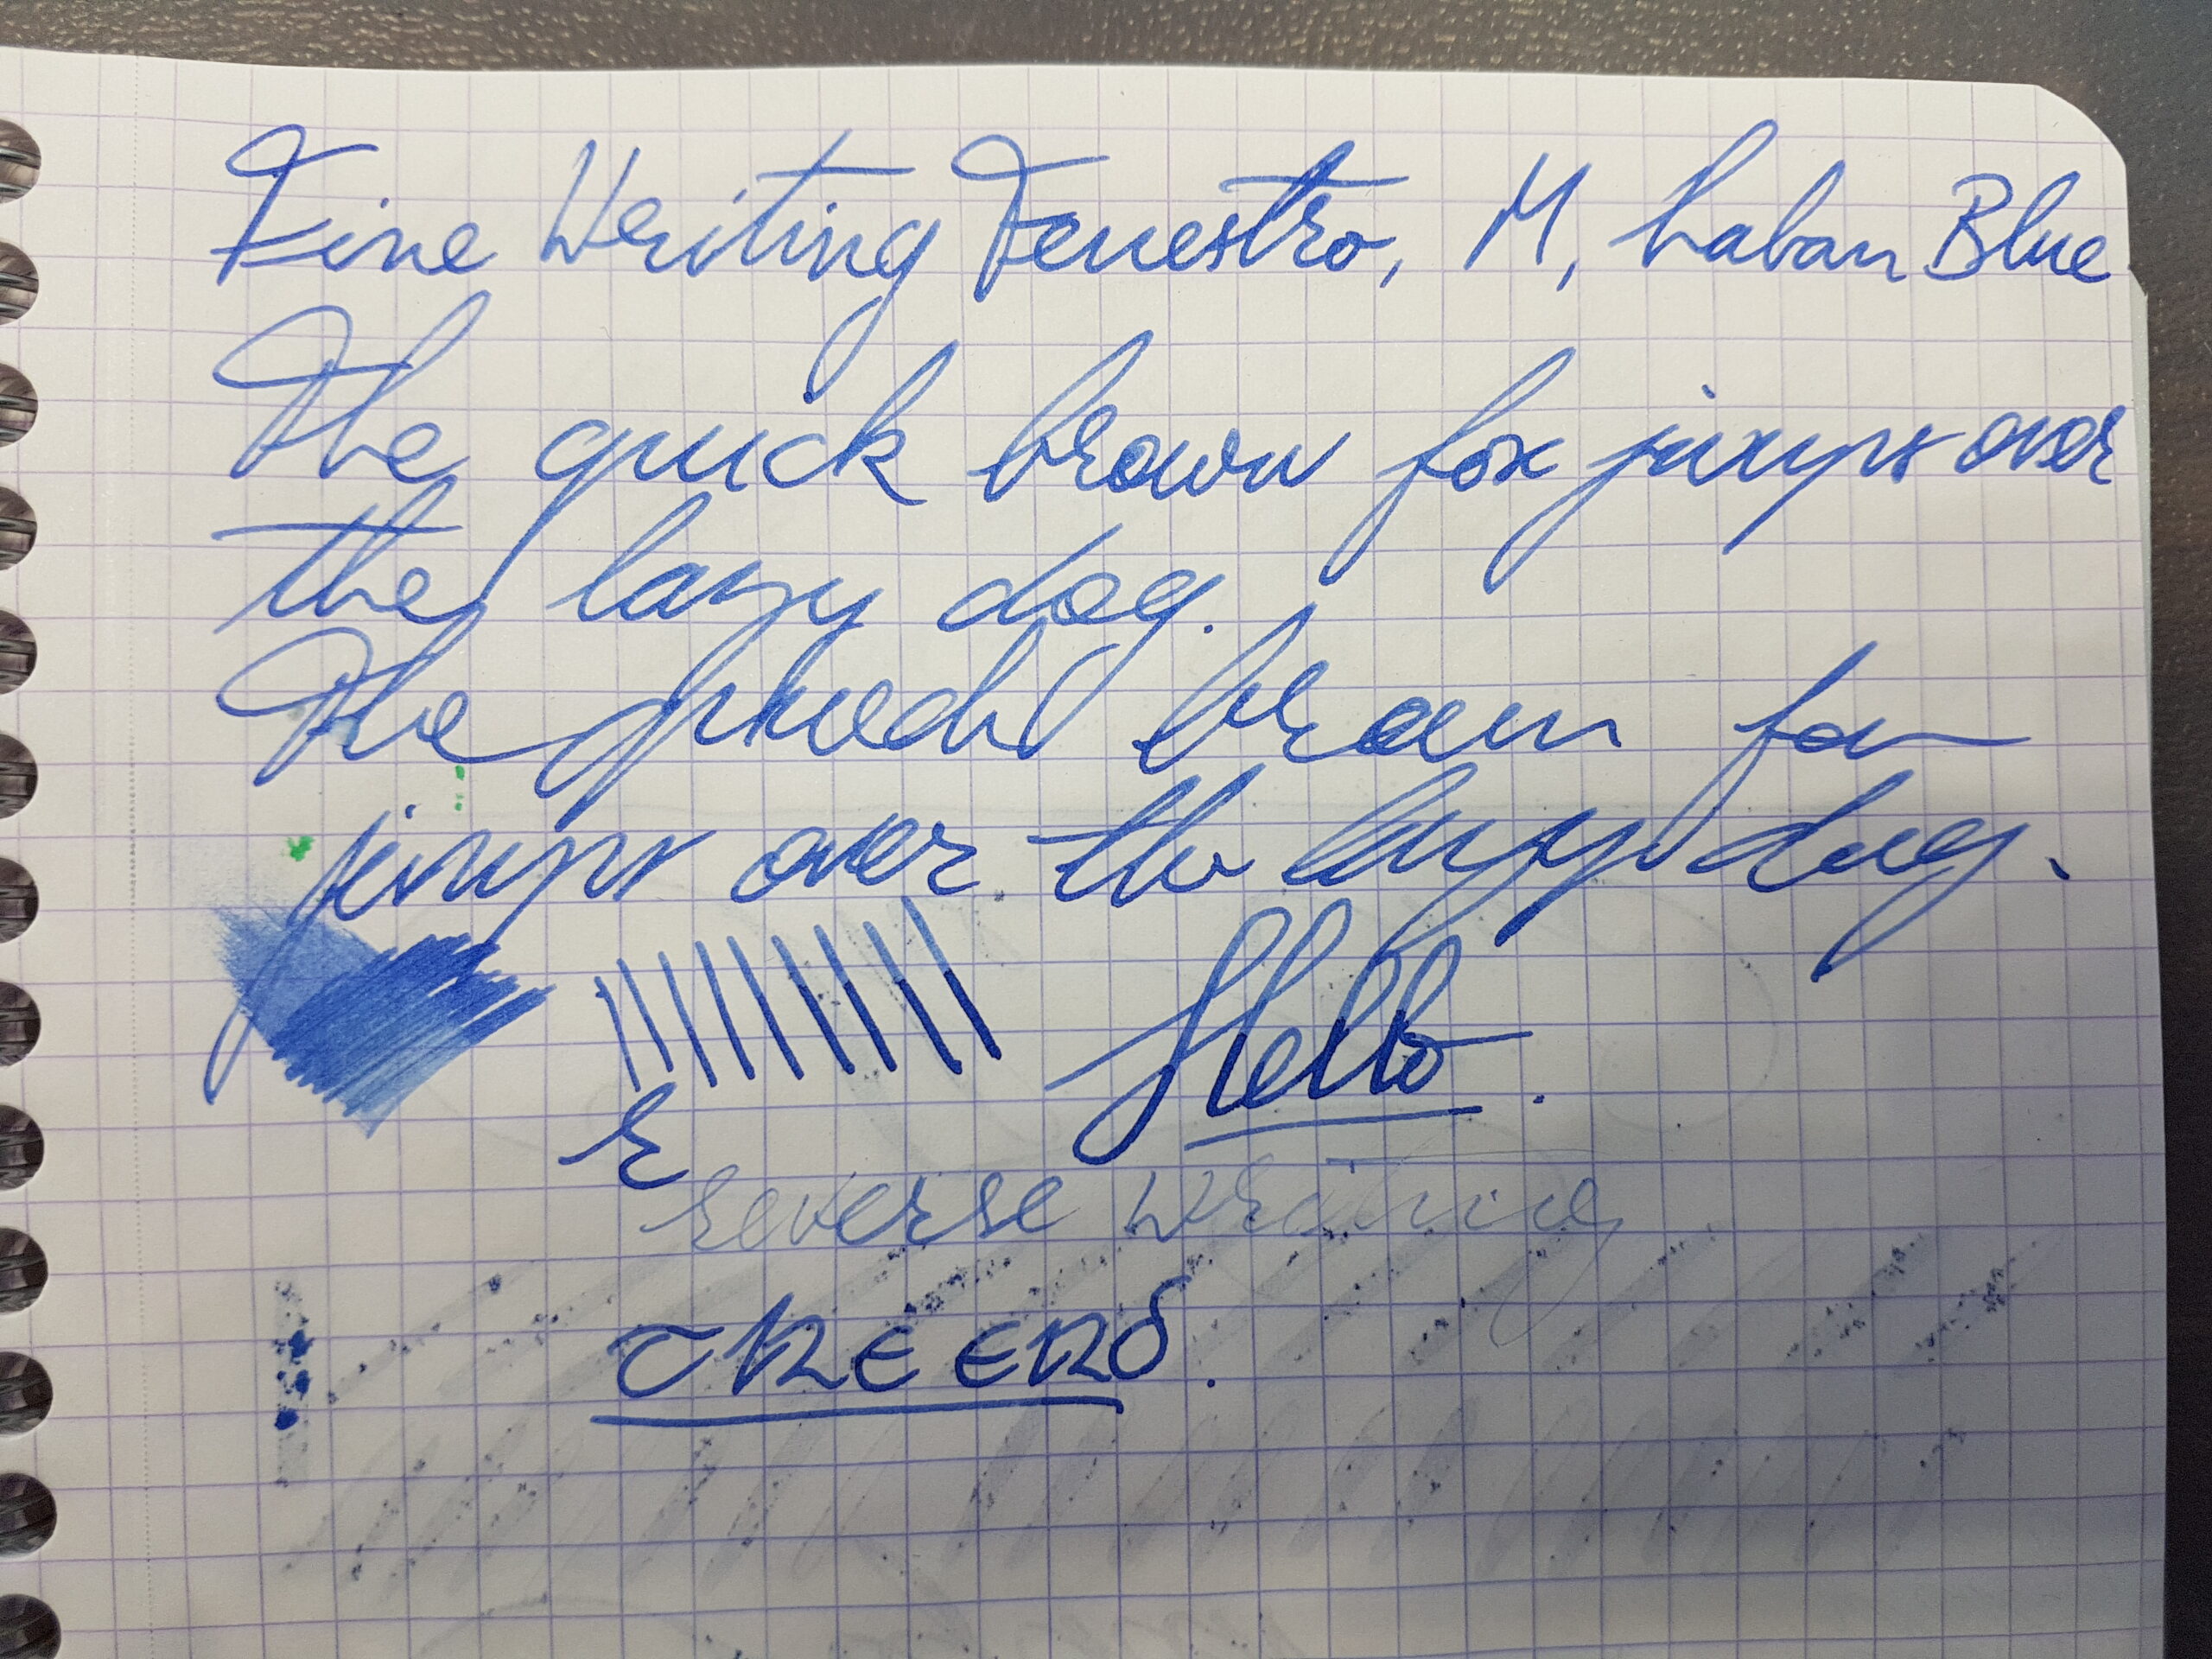 Fine Writing Fenestro, M, Laban Blue
The quick brown fox jumps over
the lazy dog.
The quick brown fox
jumps over the lazy dog.
Hello.
R
Reverse writing
THE END.